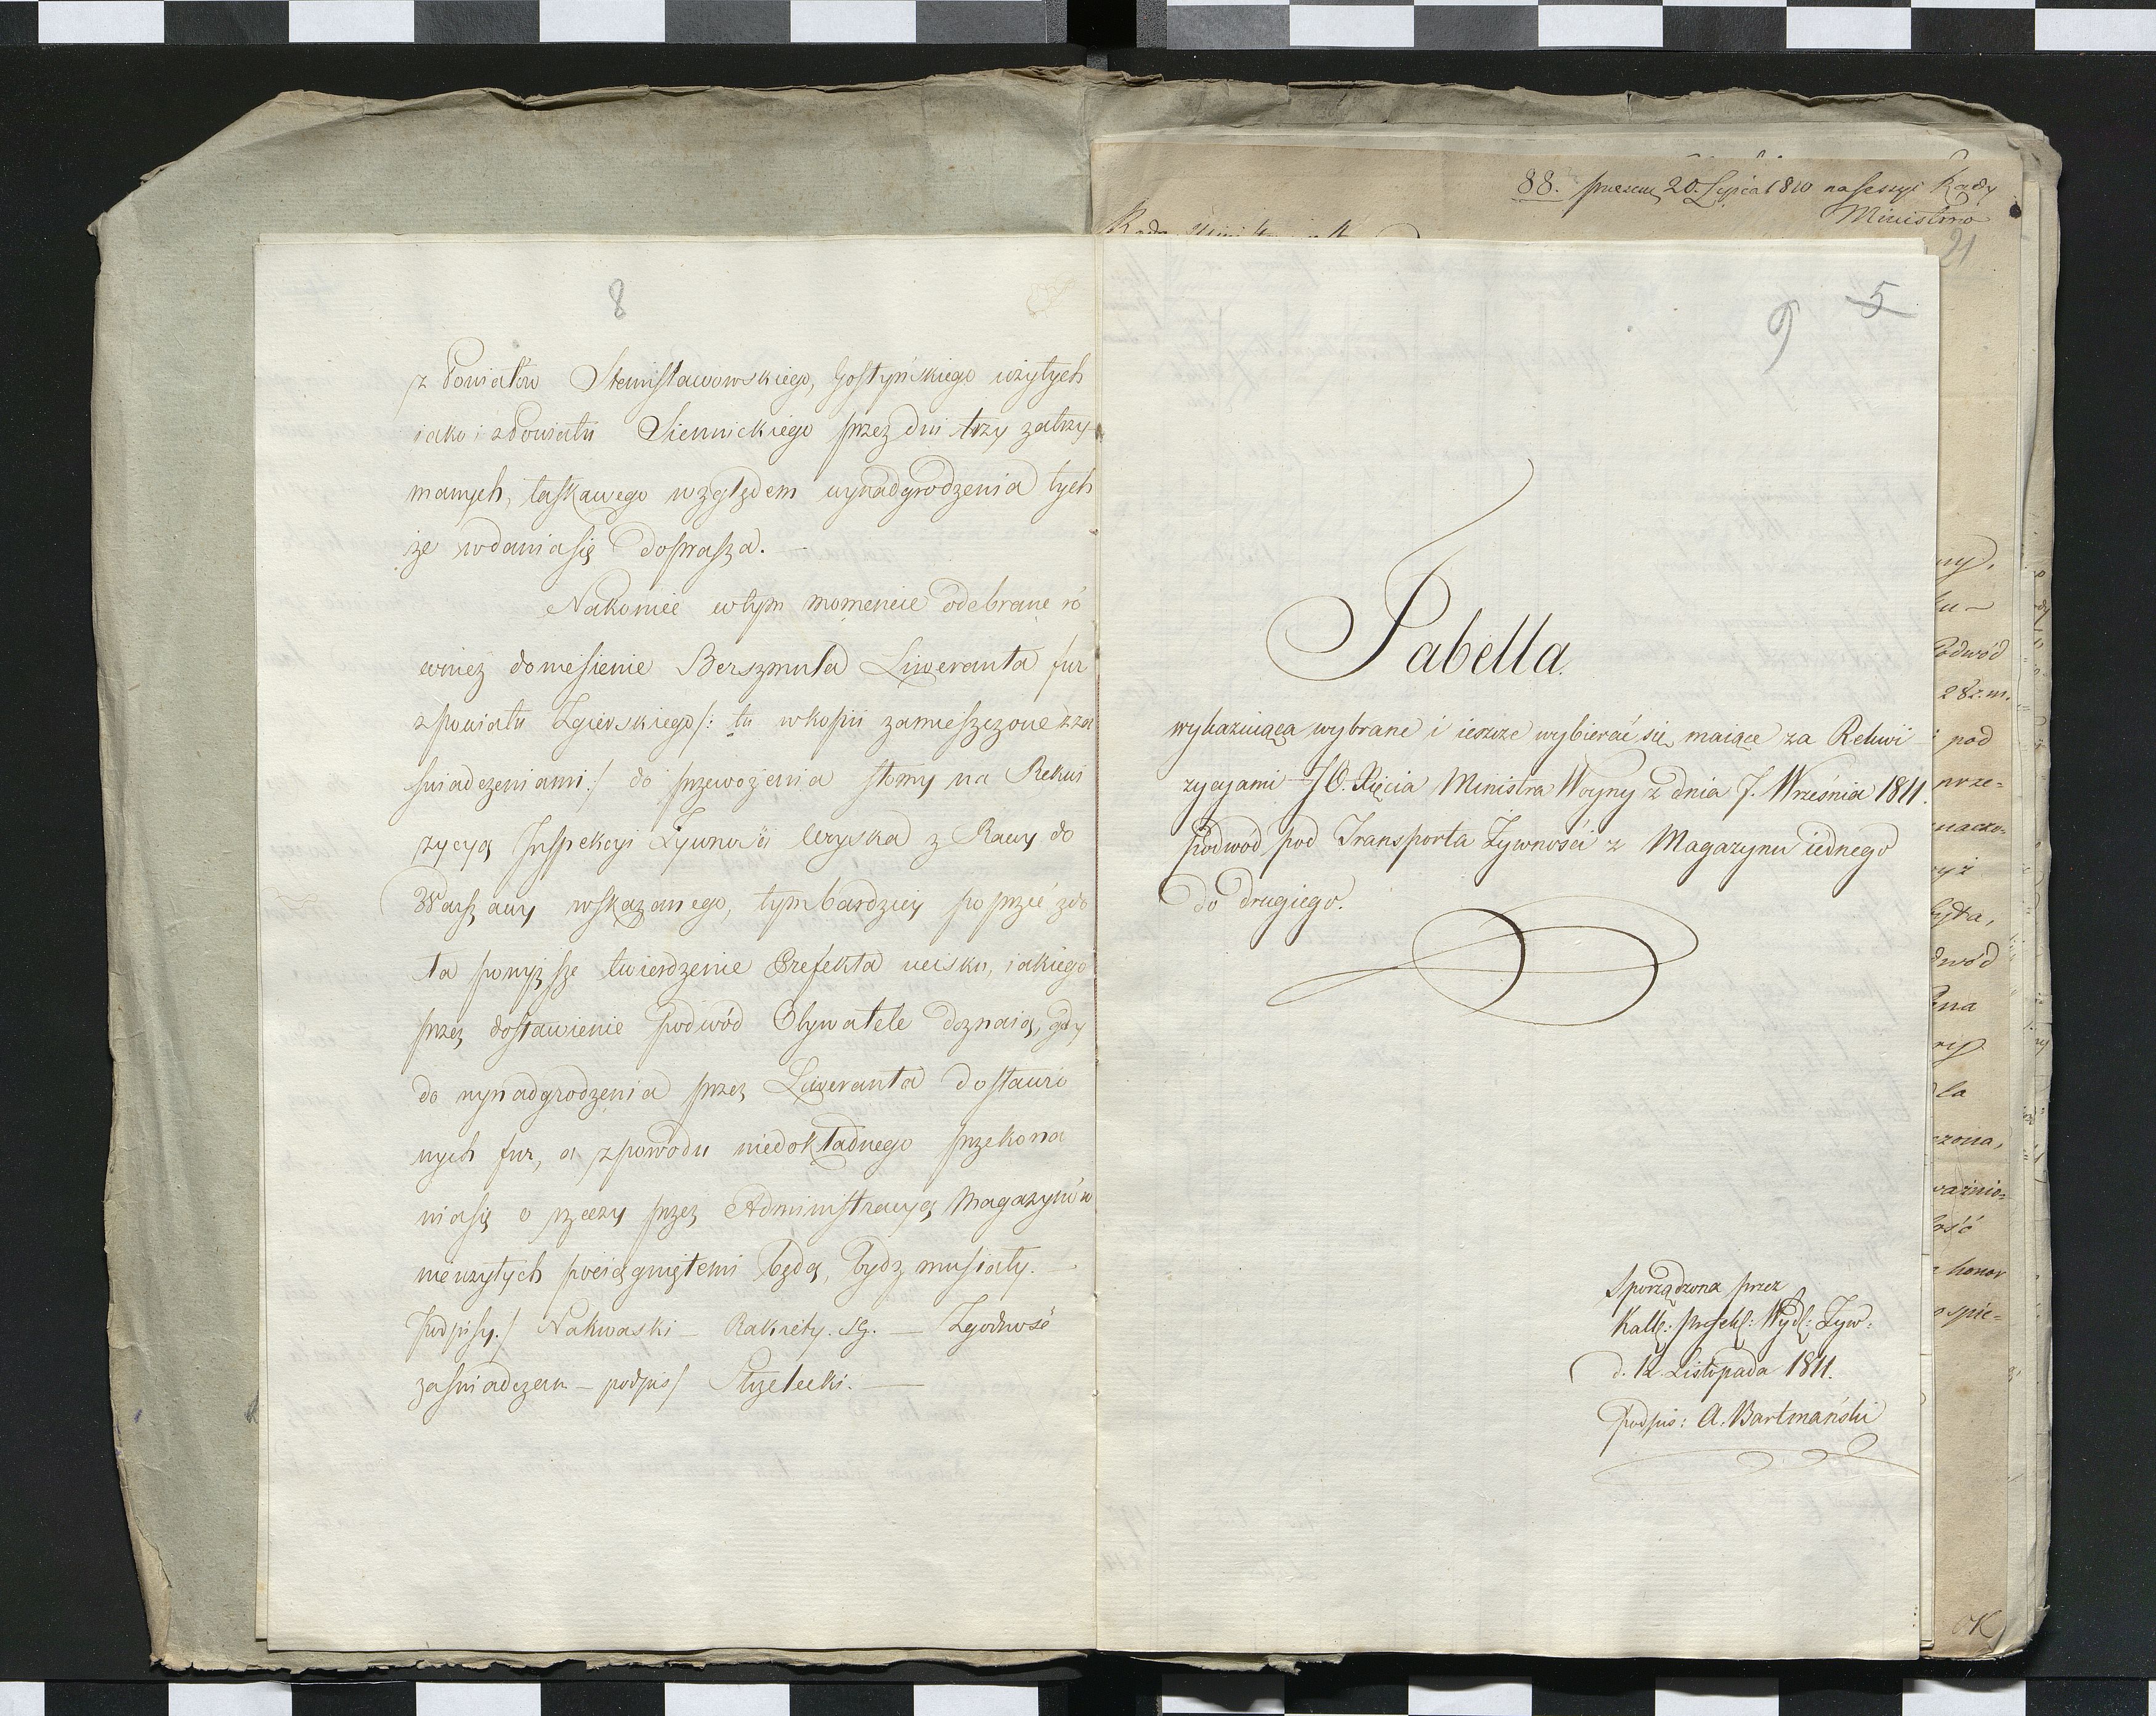 8
z Powiatów Stanisławowskiego, Gostyńskiego użytych
iako i z Powiatu Siennickiego przez dni trzy zatrzy
manych, łaskawego względem wynadgrodzenia tych
że wdania się doprasza. —
Nakoniec w tym momencie odebrane ró
wnież doniesienie Berszmuta Liweranta fur
z powiatu Zgierskiego /: tu w kopii zamieszczone z za
świadczeniami :/ do przewożenia słomy na Rekwi
zycyą Inspekcyi Żywności Woyska z Rawy do
Warszawy wskazanego, tym bardziey poprzeć zdo
ła powyższe twierdzenie Prefekta ucisku, iakiego
przez dostawienie podwód Obywatele doznaią, gdy
do wynadgrodzenia przez Liweranta dostawio
nych fur, a z powodu niedokładnego przekona
nia się o rzeczy przez Administracyą Magazynów
nieużytych pociągniętemi będą, bydź musiały. —
podpisy./ Nakwaski — Rakiety. SG. — Zgodność
zaświadczam — podpis/ Strzelecki. —
88. 20. Lipca 1810 na sessyi Rady
Ministrów
21
9 5
Tabella
wykazuiąca wybrane i ieszcze wybierać się maiące za Rekwi
zycyami J.O. Xięcia Ministra Woyny z dnia 7. Września 1811.
podwód pod Transporta Żywności z Magazynu iednego
do drugiego.
Sporządzona przez
Kalk: Prefekt: Wydz: Żyw:
d. 12 Listopada 1811.
Podpis: A. Bartmański
podwód
28 z. m.
pod
prze=
naczo=
bydła,
dwód
dla
czona,
ważnio=
honor
spie=